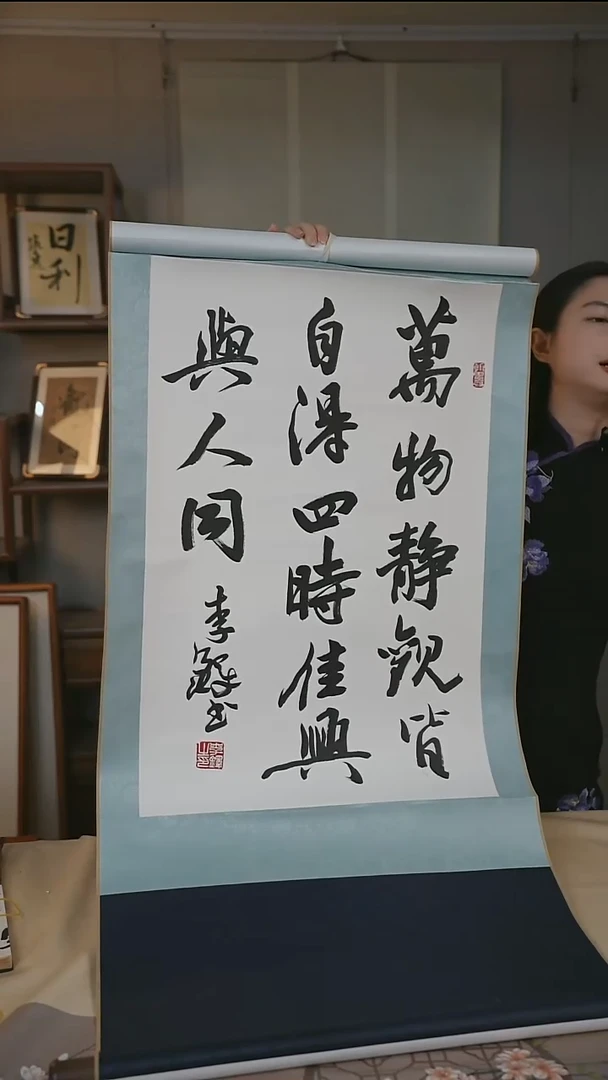 萬物静觀皆
自得四時佳興
與人同
李鋒书
日利